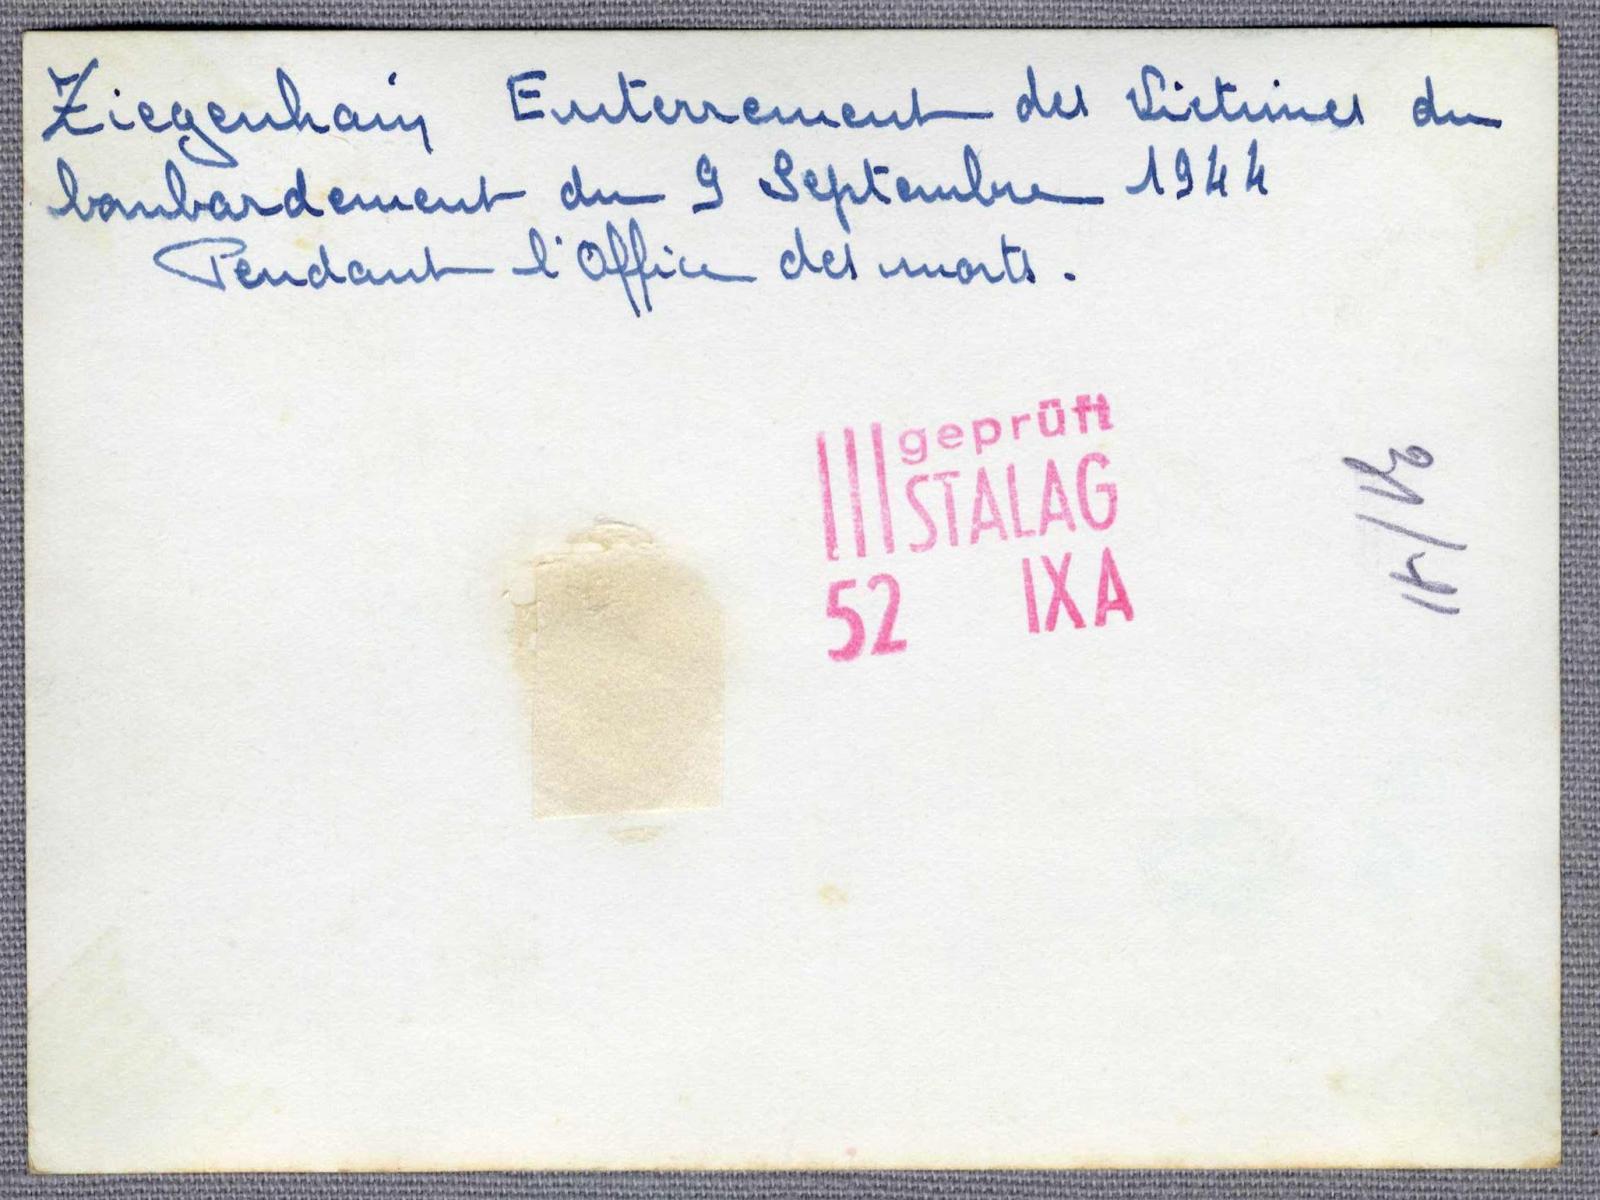 Ziegenhain Enterrement des Victimes du
bombardement du 9 Septembre 1944
Pendant l'Office des morts.
geprüft
STALAG
52 IXA